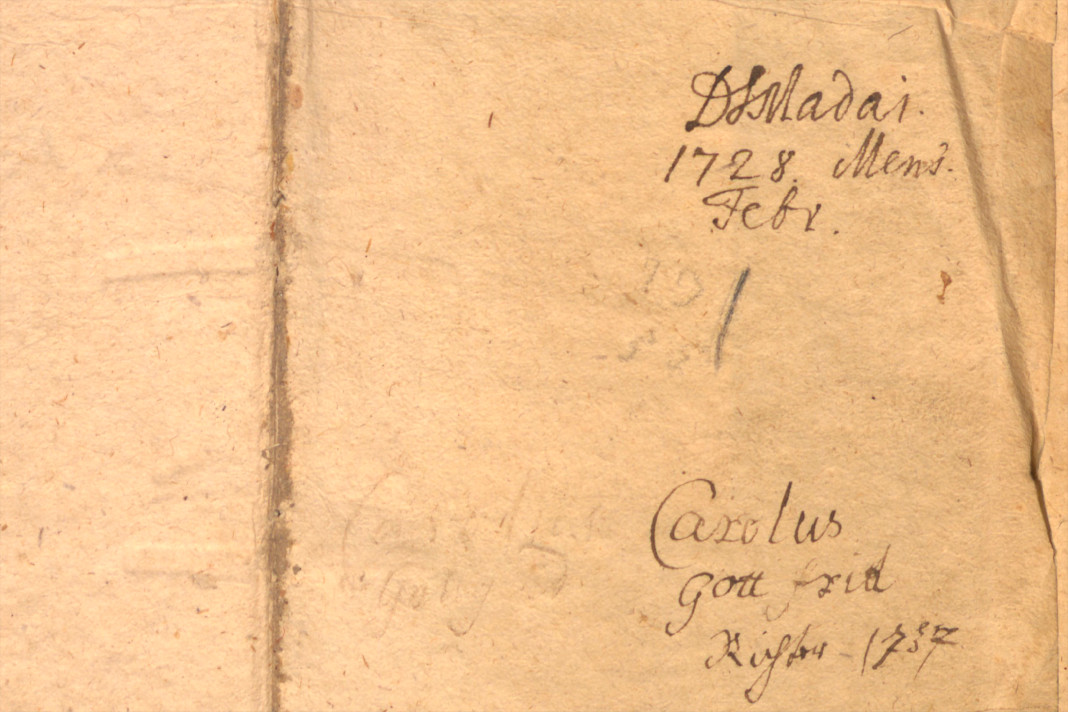 DSMadai.
1728. Mens.
Febr.
Carolus
Gottfrid
Richter 1737